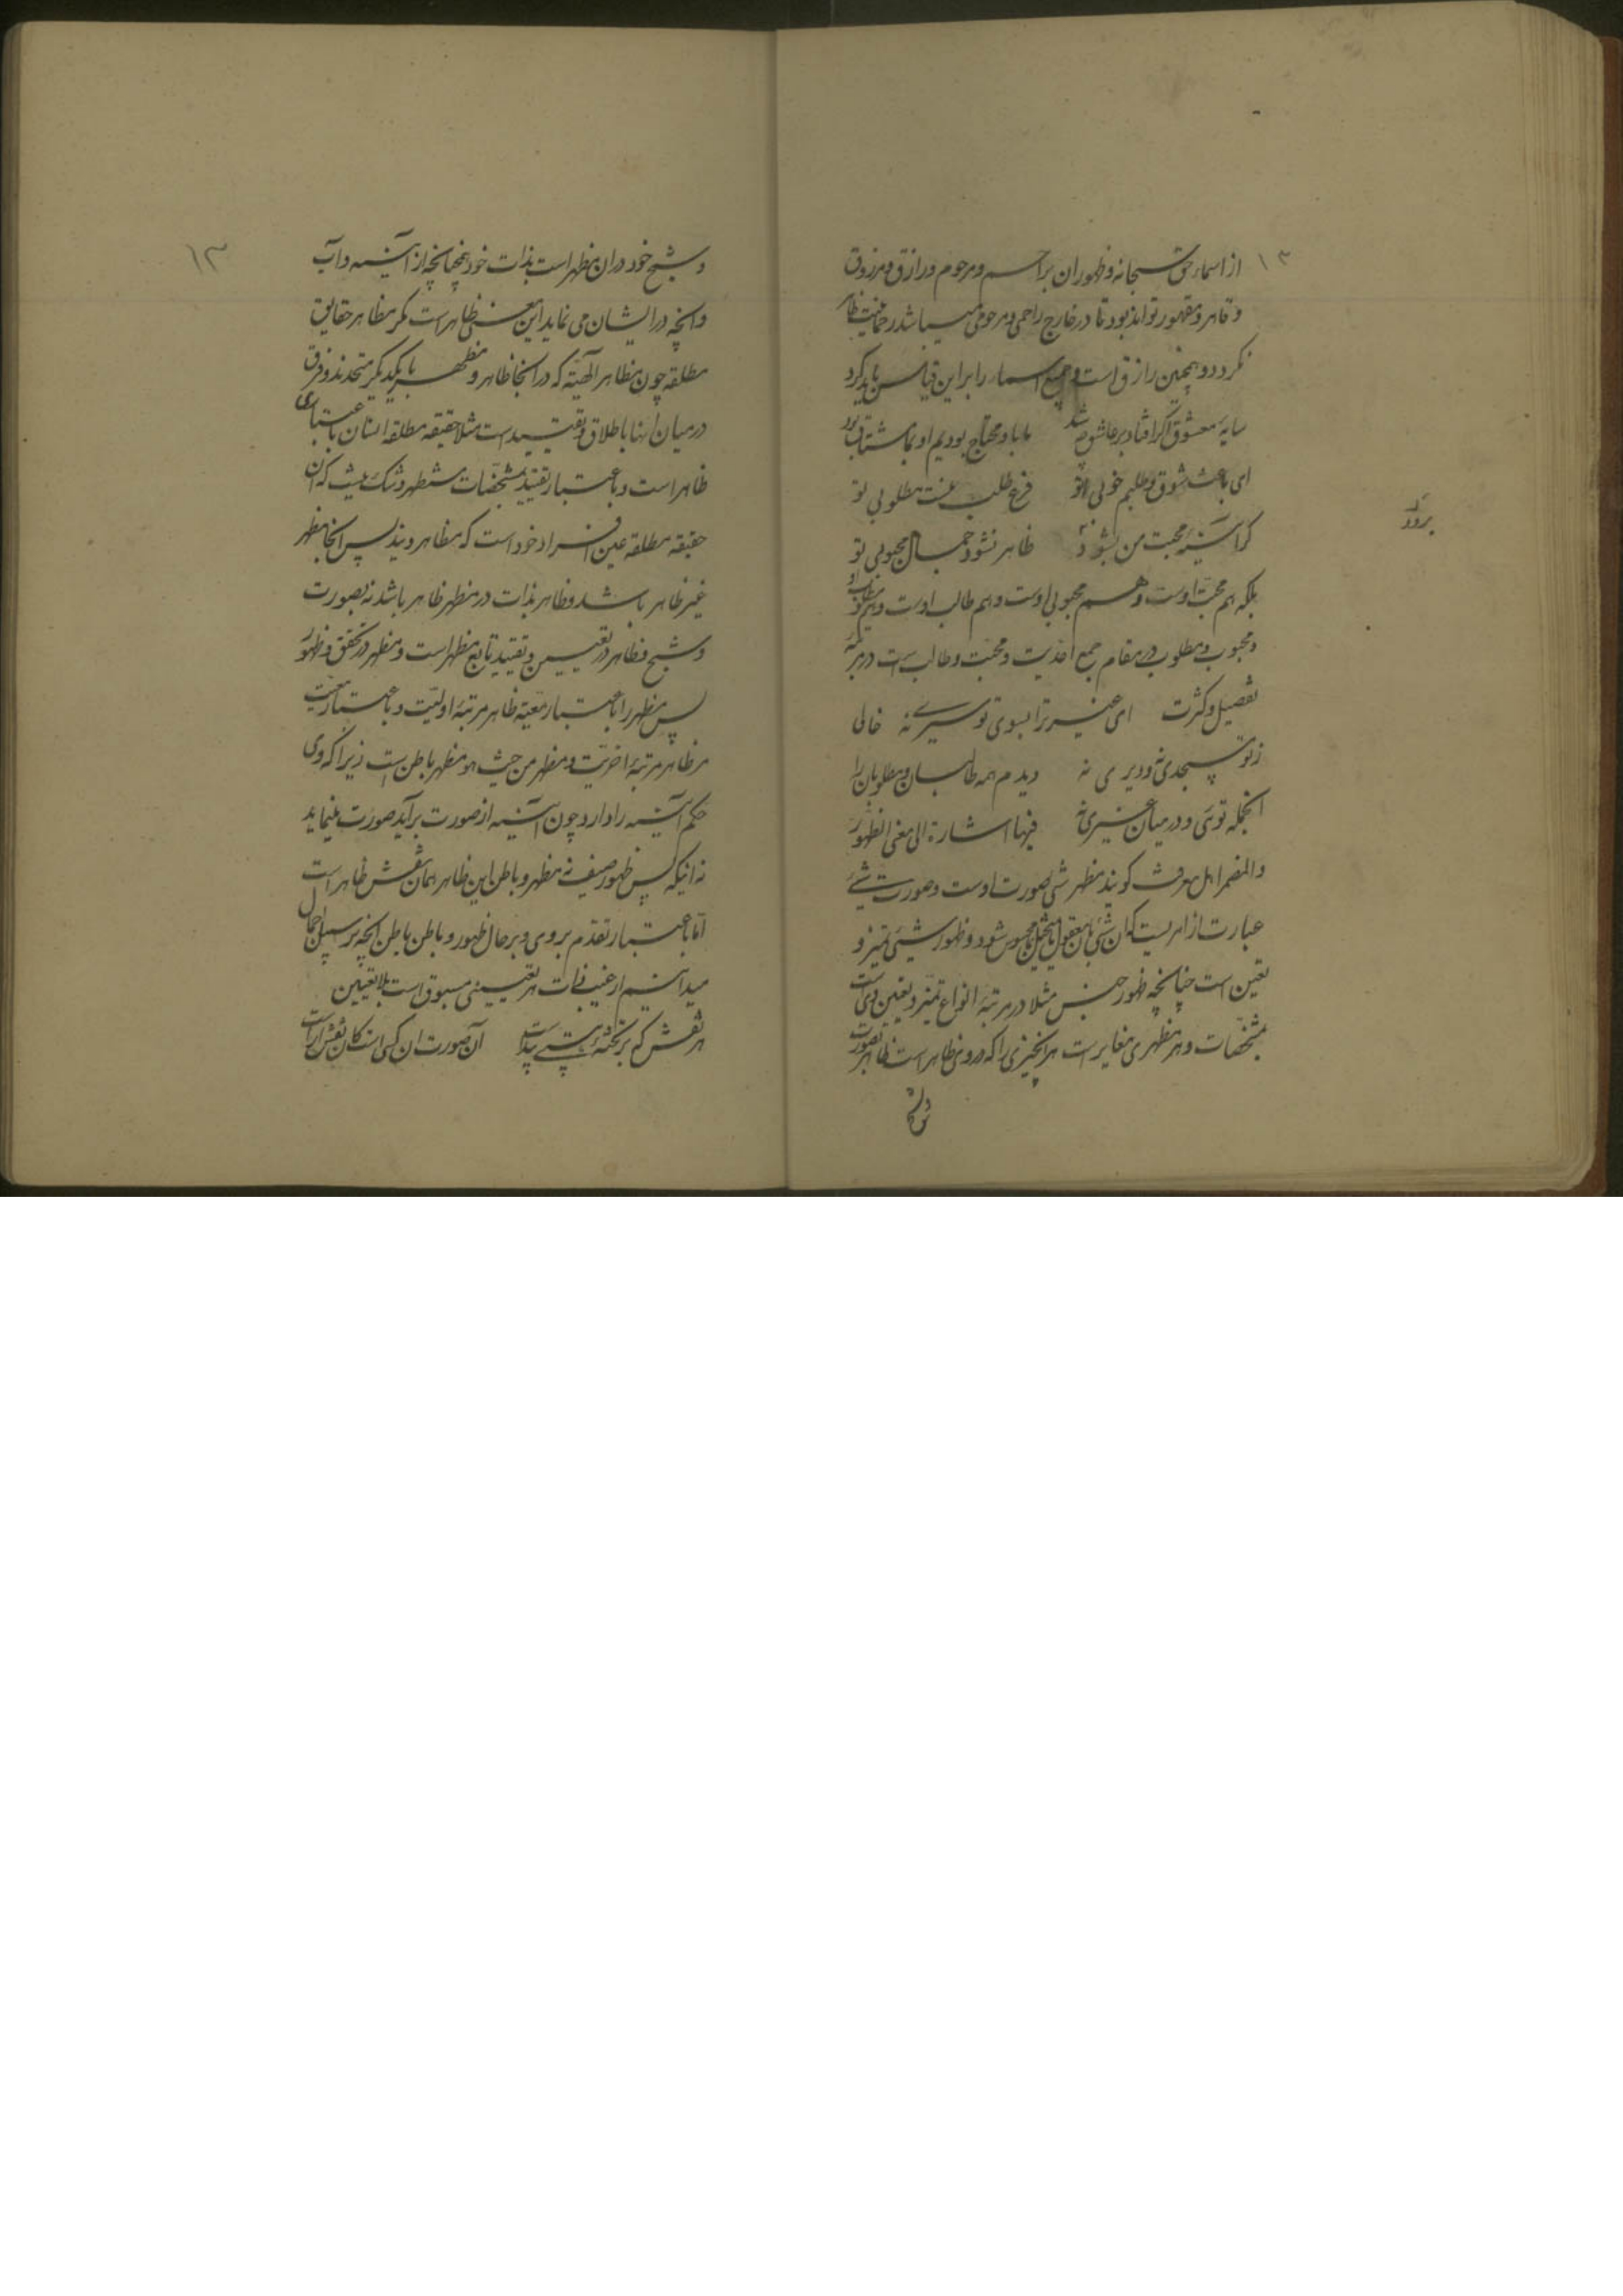 ۱۲
از اسماء حق سبحانه و ظهور ان بر راحم و مرحوم و رازق و مرزوق
و قاهر و مقهور تواند بود تا در خارج راحمی و مرحومی نمیباشد رحمانیت ظاهر
نکردد و همچنین رازق است و جمیع اسماء را براین قیاس باید کرد
سایهٔ معشوق اکر افتاد بر عاشق چه شد ما باو محتاج بودیم او بما مشتاق بود
ای باعث شوق و طلبم خوبی تو فرع طلب منست مطلوبی تو
کر آینهٔ محبت من نبود ظاهر نشود جمال محبوبی تو
بلکه هم محب اوست و هم محبوب اوست و هم طالب اوست و هم مطلوب او
و محبوب و مطلوب در مقام جمع احدیت و محبت و طالب است در مرتبهٔ
تفصیل و کثرت ای غیر ترا بسوی تو سیری نه خالی
ز تو مسجدی نه و دیری نه دیدم همه طالبان و مطلوبان را
انجمله توئی و در میان غیری نه فیها اشارة الی معنی الظهور
والمضمر اهل معرفت کویند مظهر شی صورت اوست و صورت شیئ
عبارت از امریست که ان شئ بان معقول یا متخیل یا محسوس شود و ظهور شیئ تمیز و
تعین است چنانچه ظهور جنس مثلا در مرتبهٔ انواع تمیز و تعین وی است
بمشخصات و هر مظهری مغایر است هر انچیزی را که در وی ظاهر است ظاهر بصورت
برود
۱۳
و شبح خود در ان مظهر است نه بذات خود همچنانچه از آینه و آب
و انچه در ایشان می نماید این معنی ظاهر است مکر مظاهر حقایق
مطلقه چون مظاهر الهیّه که در انجا ظاهر و مظهر با یکدیکر متحدند و فرق
در میان انها باطلاق و تقیید است مثلا حقیقه مطلقه انسان باعتباری
ظاهر است و باعتبار تقیید بمشخصات مظهر و شک نیست که ان
حقیقه مطلقه عین افراد خود است که مظاهر ویند پس انجا مظهر
غیر ظاهر باشد و ظاهر بذات در مظهر ظاهر باشد نه بصورت
و شبح و ظاهر در تعیین و تقیید تابع مظهر است و مظهر در تحقق و ظهور
پس مظهر را باعتبار معیّه ظاهر مرتبهٔ اولیّت و باعتبار تبعیت
مر ظاهر مرتبهٔ اخریّت و مظهر من حیث هو مظهر باطن است زیرا که وی
حکم آینه را دارد و چون آینه از صورت برآید صورت مینماید
نه اینکه پس ظهور صفت مظهر و باطن این ظاهر همان نقش ظاهر است
امّا باعتبار تقدم بر وی و بر حال ظهور و باطن باطن انچه بر سبیل اجمال
میدانیم از غیب ذات هر تعیینی مسبوق است بلاتعیین
هر نقش که بر تختهٔ هستی پیداست آن صورت ان کس است کان نقش آراست